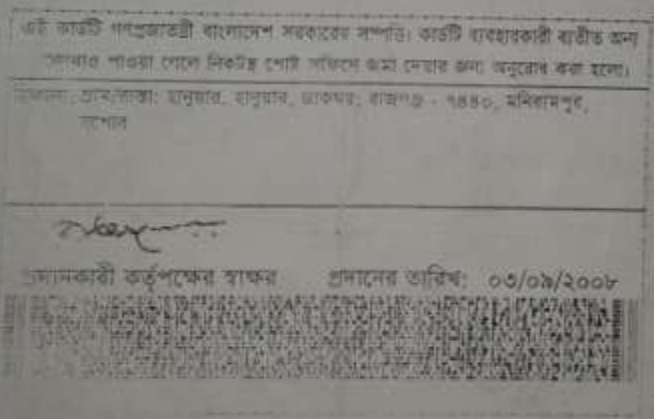 এই কার্ডটি গণপ্রজাতন্ত্রী বাংলাদেশ সরকারের সম্পত্তি। কার্ডটি ব্যবহারকারী ব্যতীত অন্য
কোথাও পাওয়া গেলে নিকটস্থ পোষ্ট অফিসে জমা দেয়ার জন্য অনুরোধ করা হলো।
ঠিকানা: গ্রাম/রাস্তা: হানুয়ার, হানুয়ার, ডাকঘর: রাজগঞ্জ - ৭৪৪০, মনিরামপুর,
যশোর
প্রদানকারী কর্তৃপক্ষের স্বাক্ষর প্রদানের তারিখ: ০৩/০৯/২০০৮